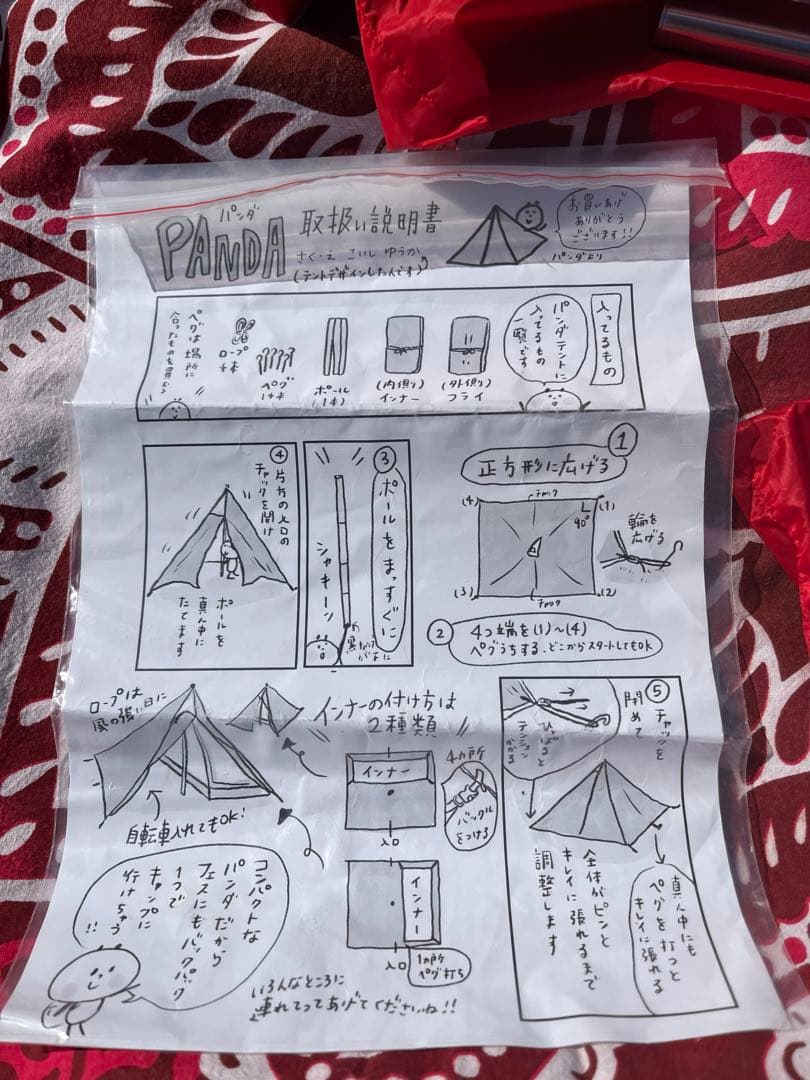 パンダ
PANDA
取扱い説明書
さく・え こいし ゆうか
(テントデザインしたんです)
お買いあげ
ありがとう
ございます!!
パンダより
入ってるもの
パンダテントに
入ってるもの
一覧です
(外側)
フライ
(内側)
インナー
ポール
(1本)
ペグ
ロープ
ペグは場所に
合ったものを買おう
①
正方形に広げる
(4)
チャック
(1)
90°
(3)
チャック
(2)
輪を
広げる
②
4つ端を(1)~(4)
ペグうちする、どこからスタートしてもOK
③
ポールをまっすぐに
シャキーン
④
片方の入口の
チャックを開け
ポールを
真ん中に
たてます
⑤
チャックを
閉めて
ひっぱると
テンション
かかる
全体がピンと
キレイに張れるまで
調整します
真ん中にも
ペグを打つと
キレイに張れる
インナーの付け方は
2種類
ロープは
風の強い日に
自転車入れてもOK!
インナー
入口
4カ所
バックル
をつける
インナー
入口
1カ所
ペグ打ち
コンパクトな
パンダだから
フェスにもバックパック
1つで
キャンプに
行けちゃう
!!
いろんなところに
連れてってあげてくださいね!!